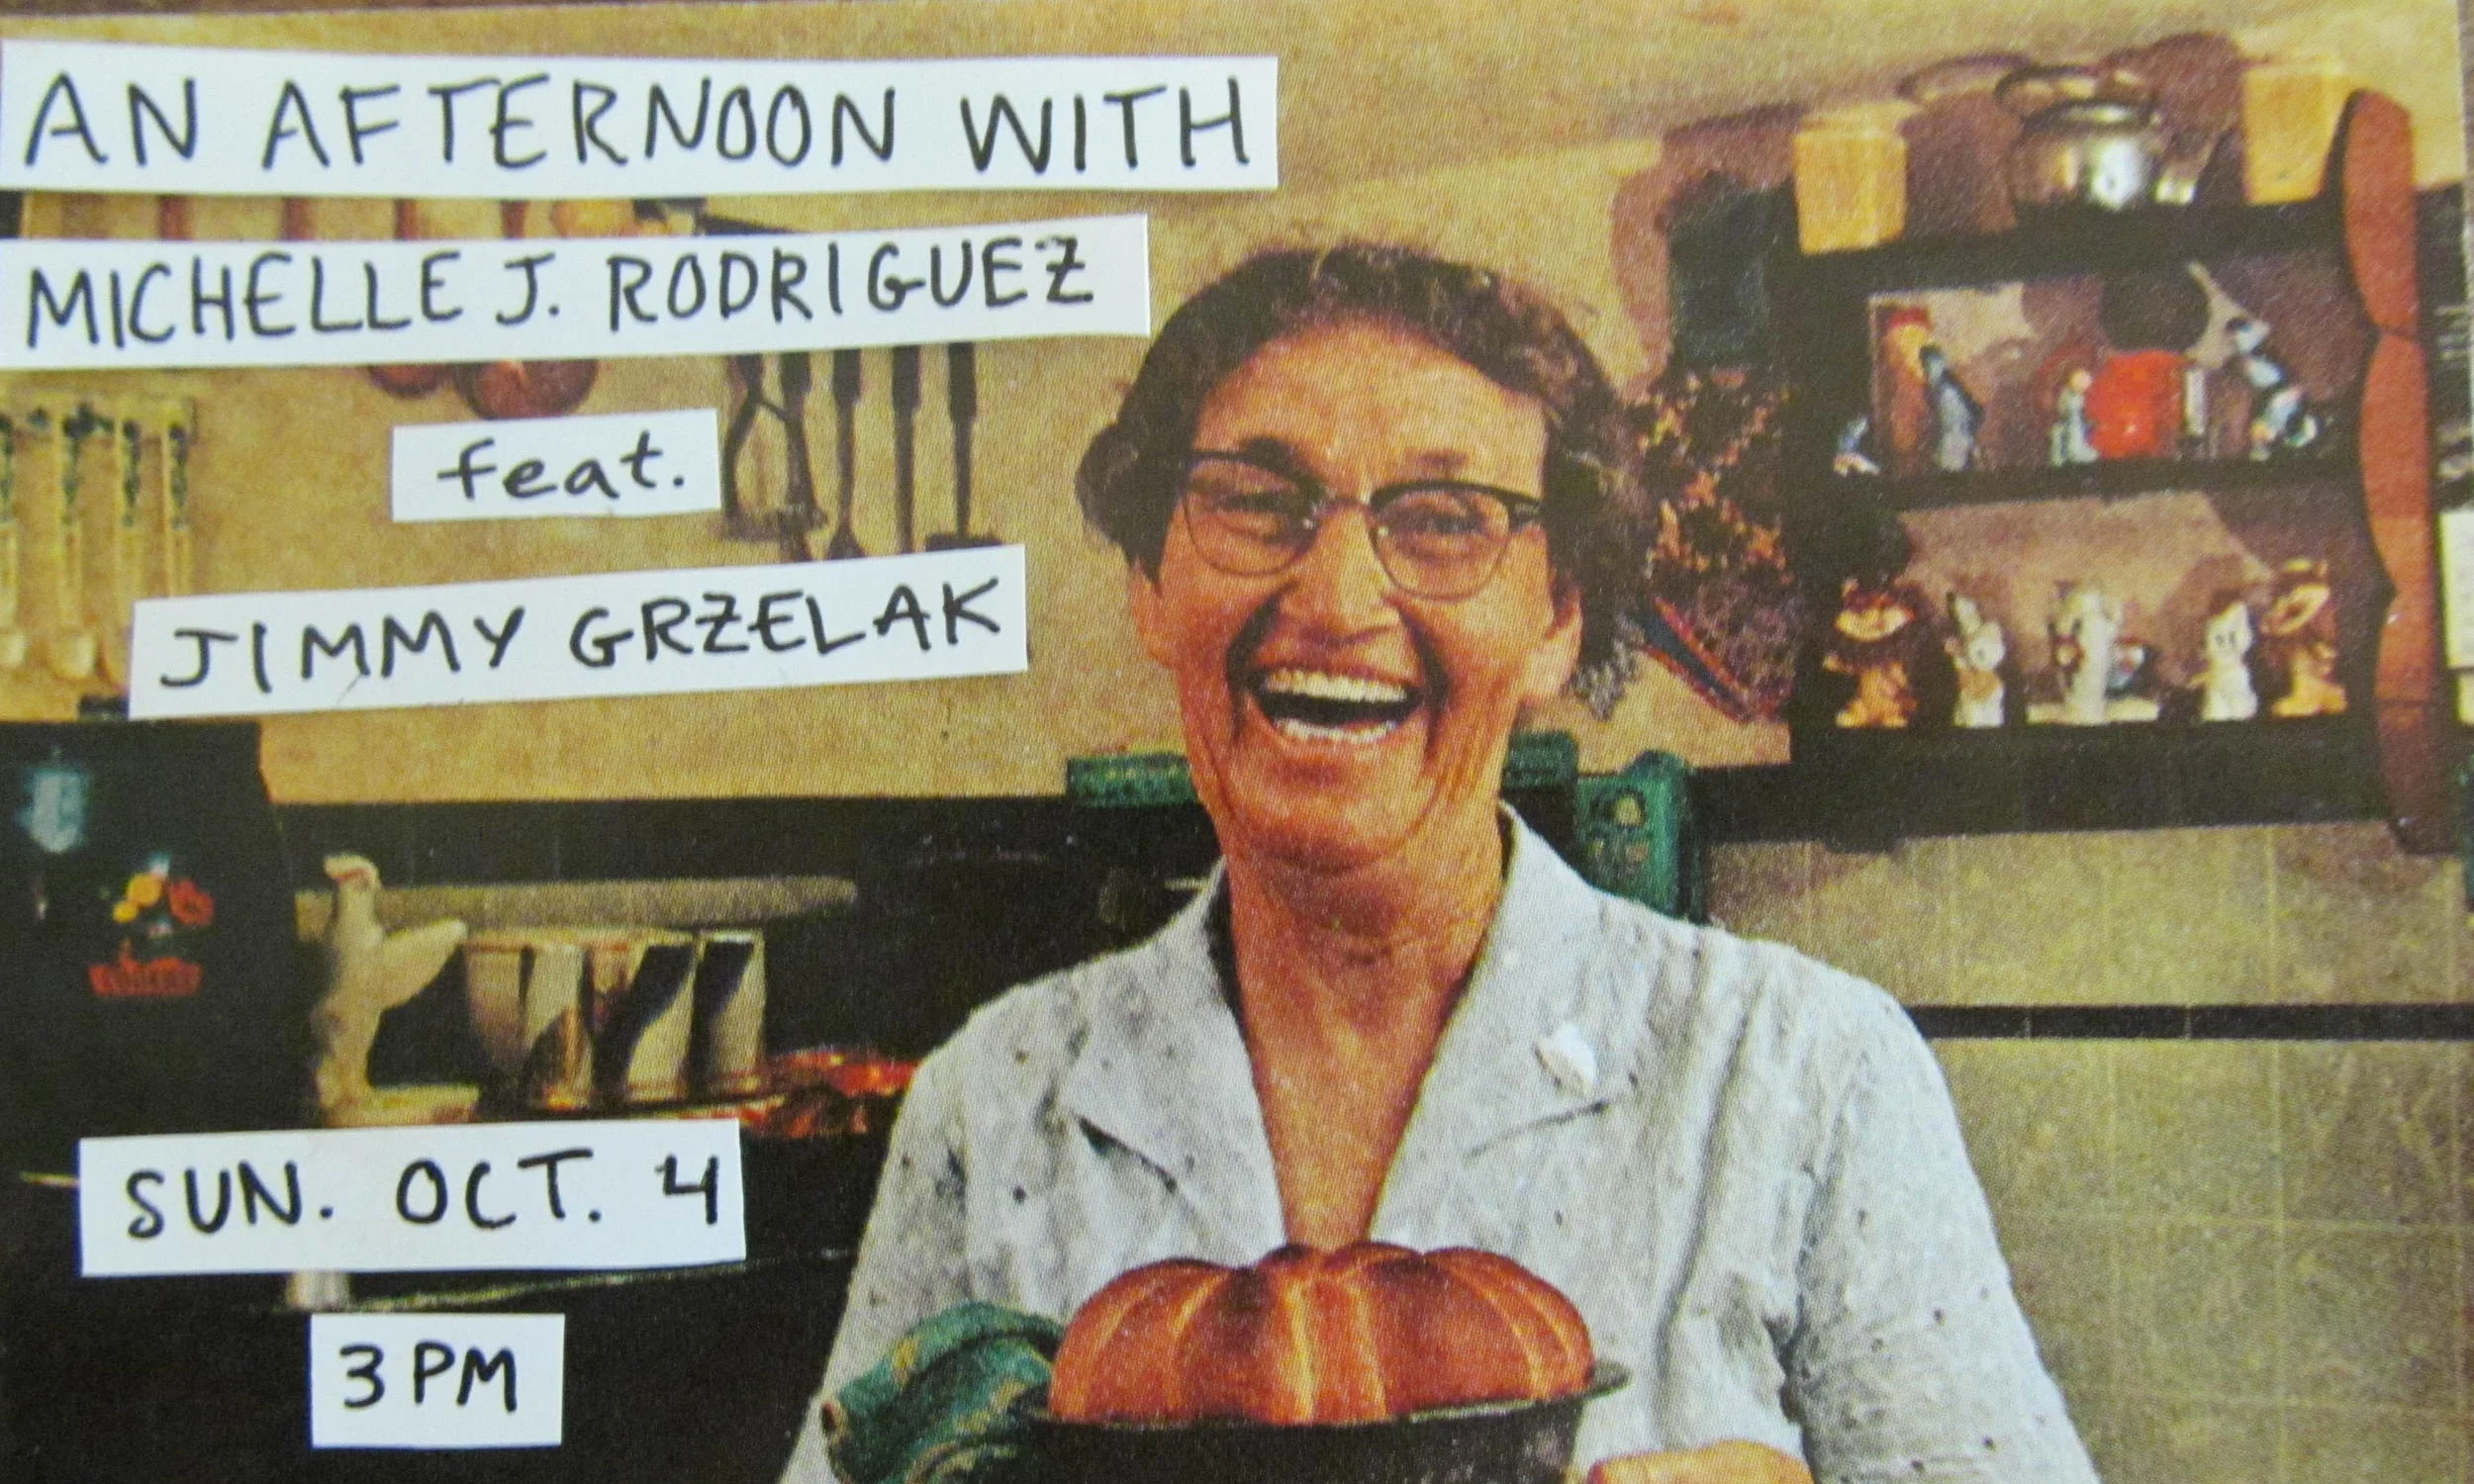 AN AFTERNOON WITH
MICHELLE J. RODRIGUEZ
feat.
JIMMY GRZELAK
SUN. OCT. 4
3 PM